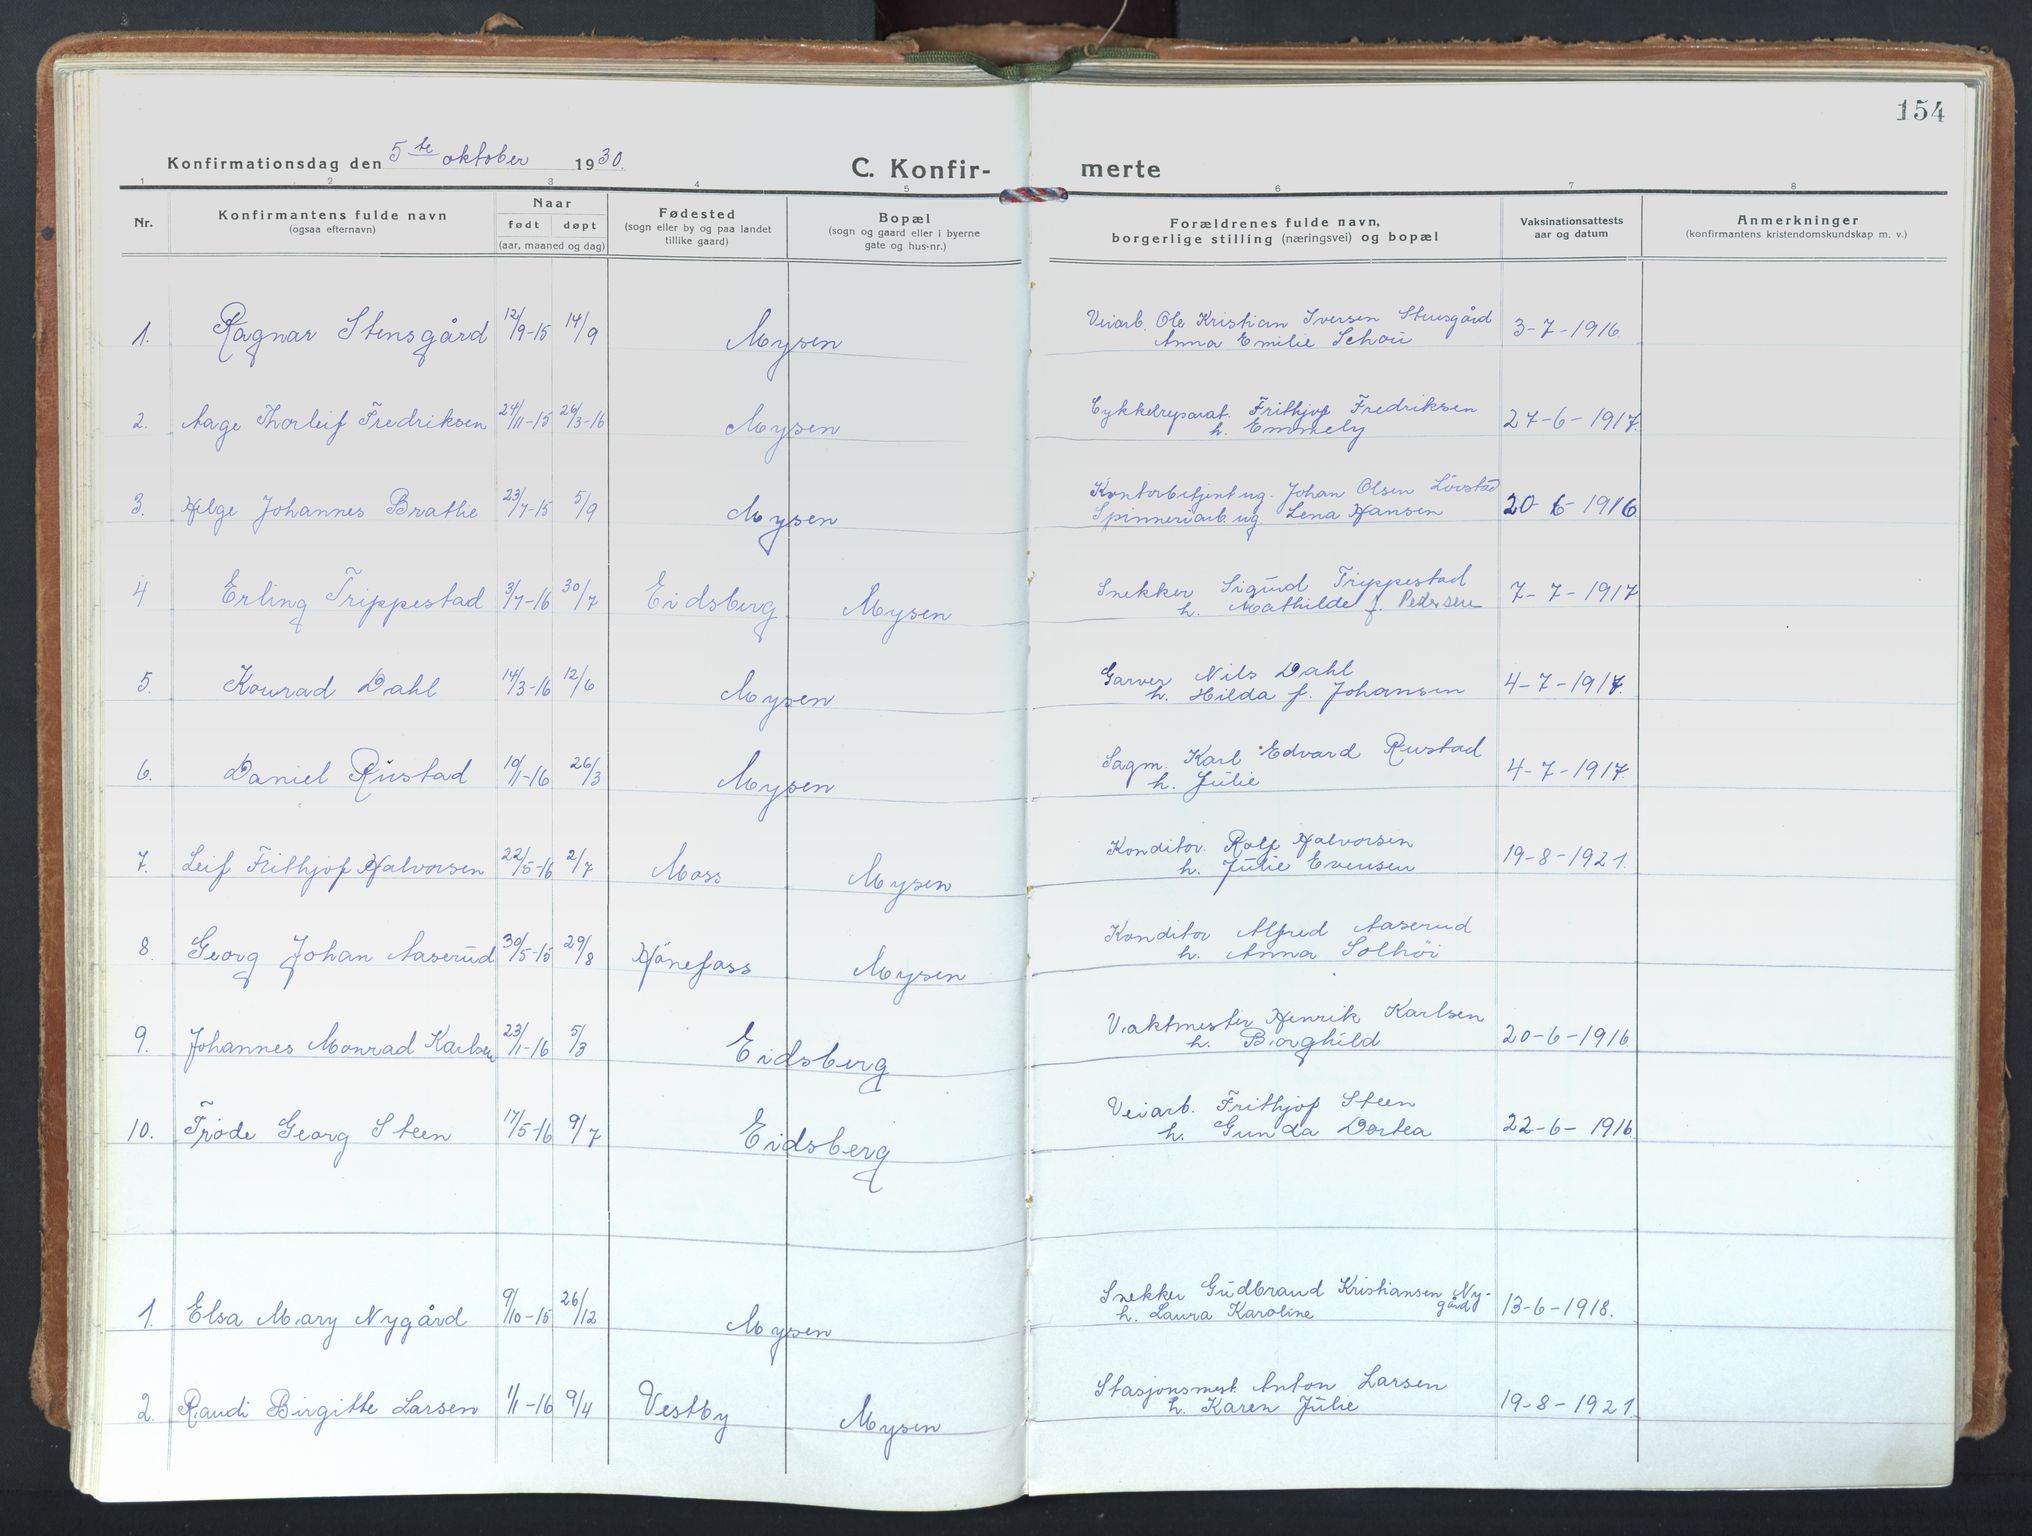 154
Konfirmationsdag den 5te oktober 1930.
C. Konfir- merte
1 2 3 4 5 6 7 8
Nr.
Konfirmantens fulde navn
(ogsaa efternavn)
Naar
født døpt
(aar, maaned og dag)
Fødested
(sogn eller by og paa landet
tillike gaard)
Bopæl
(sogn og gaard eller i byerne
gate og hus-nr.)
Forældrenes fulde navn,
borgerlige stilling (næringsvei) og bopæl
Vaksinationsattests
aar og datum
Anmerkninger
(konfirmantens kristendomskundskap m. v.)
1. Ragnar Stensgård 12/9-15 14/9 Mysen Veiarb. Ole Kristian Iversen Stensgård 3-7-1916.
Anna Emilie Schou
2. Aage Thorleif Fredriksen 24/11-15 26/3-16 Mysen Cykkelreparat. Frithjof Fredriksen 27-6-1917.
h. Emmely
3. Helge Johannes Brathe 23/7-15 5/9 Mysen Kontorbetjent ug. Johan Olsen Lövstad 20-6-1916
Spinneriarb. ug. Lena Hansen
4 Erling Trippestad 3/7-16 30/7 Eidsberg Mysen Snekker Sigurd Trippestad 7-7-1917
h. Mathilde f. Pedersen
5. Konrad Dahl 14/3-16 12/6 Mysen Garver Nils Dahl 4-7-1917.
h. Hilda f. Johansen
6. Daniel Rustad 10/1-16 26/3 Mysen Sagm. Karl Edvard Rustad 4-7-1917.
h. Julie
7. Leif Frithjof Halvorsen 22/5-16 2/7 Moss Mysen Konditor. Rolf Halvorsen 19-8-1921.
h. Julie Evensen
8. Georg Johan Aaserud 30/5-15 29/8 Hönefoss Mysen Konditor Alfred Aaserud
h. Anna Solhöi
9. Johannes Monrad Karlsen 23/1-16 5/3 Eidsberg Vaktmester Henrik Karlsen 20-6-1916
h. Borghild
10. Frode Georg Steen 17/5-16 9/7 Eidsberg Veiarb. Frithjof Steen 22-6-1916
h. Gunda Dortea
1. Elsa Mary Nygård 9/10-15 26/12 Mysen Snekker Gudbrand Kristiansen Ny-
gård 13-6-1918.
h. Laura Karoline
2. Randi Birgitte Larsen 1/1-16 9/4 Vestby Mysen Stasjonsmest. Anton Larsen 19-8-1921.
h. Karen Julie